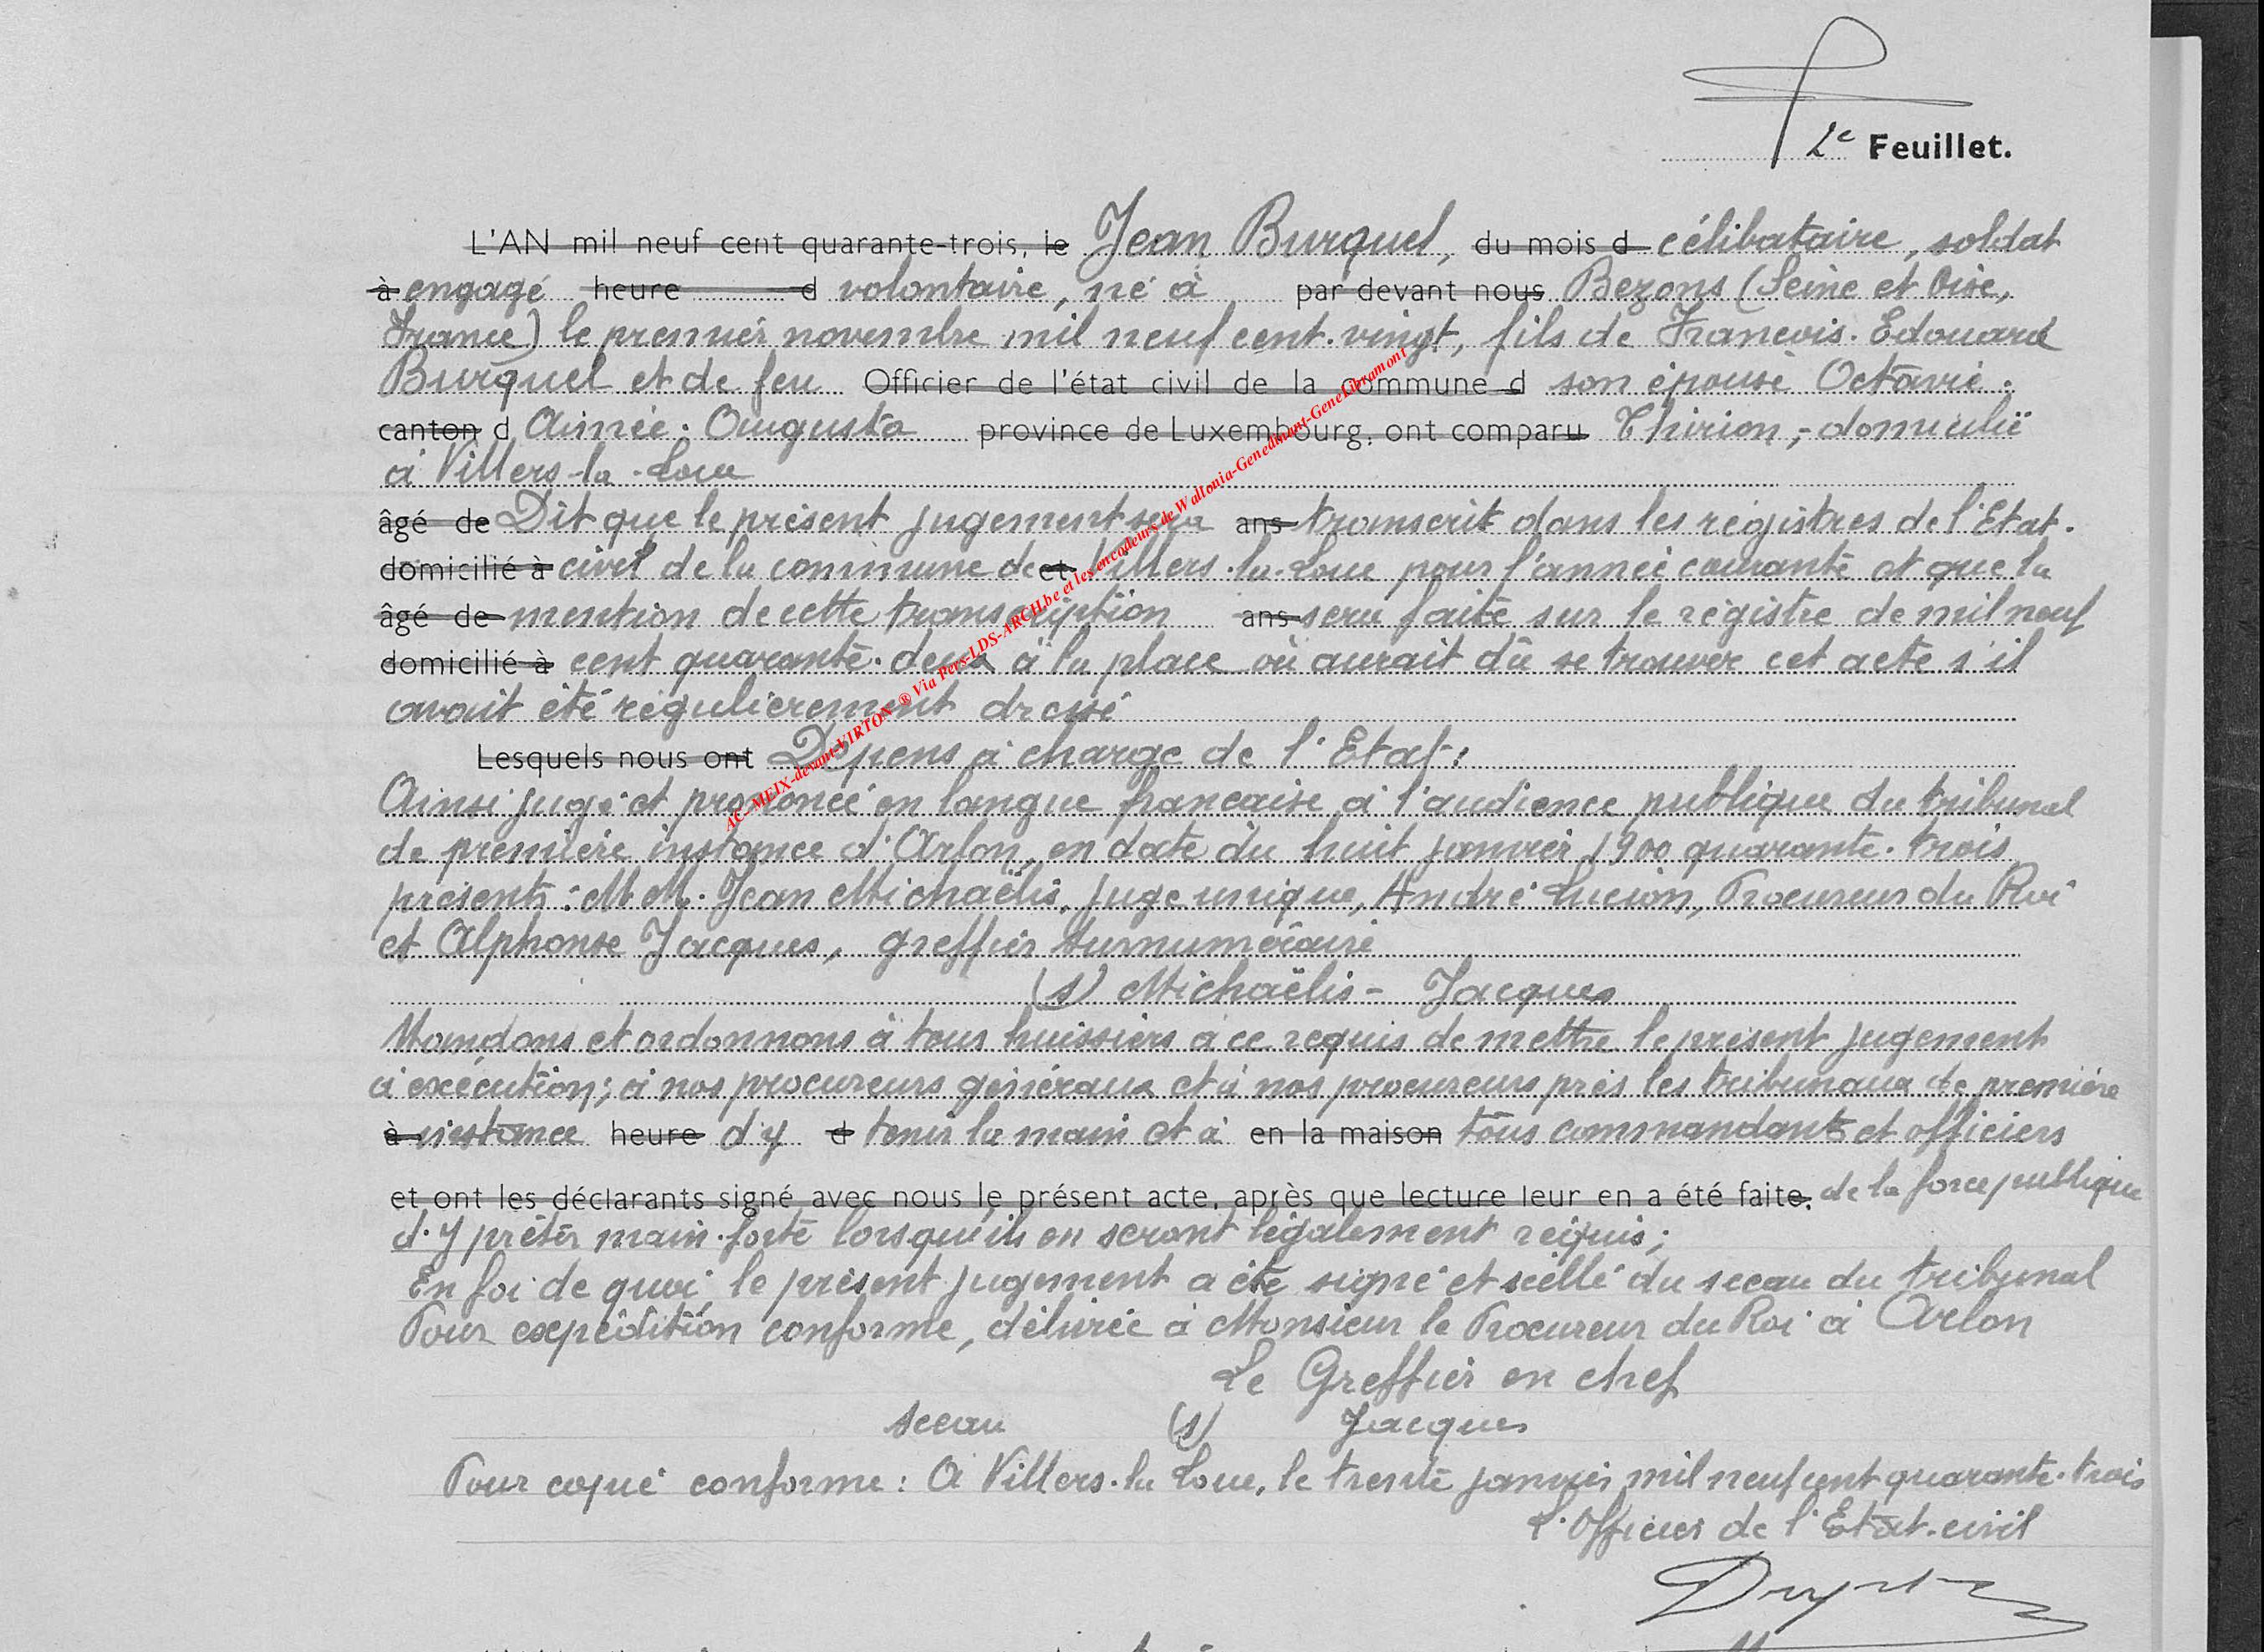 2e Feuillet.
L'AN mil neuf cent quarante-trois, le Jean Burquel, du mois d célibataire, soldat
à engagé heure d volontaire, né à par devant nous Bezons (Seine et Oise,
France) le premier novembre mil neuf cent-vingt, fils de François-Edouard
Burquel et de feu Officier de l'état civil de la commune d son épouse Octavie-
canton d Aimée-Augusta province de Luxembourg, ont comparu Thirion,-domicilié
à Villers-la-Loue
âgé de Dit que le présent jugement sera ans transcrit dans les registres de l'Etat-
domicilié à civil de la commune de et Villers-la-Loue pour l'année courante et que la
âgé de mention de cette transcription ans sera faite sur le registre de mil neuf
domicilié à cent quarante-deux à la place où aurait dû se trouver cet acte s'il
avait été régulièrement dressé
Lesquels nous ont Dépens à charge de l'Etat;
Ainsi jugé et prononcé en langue française à l'audience publique du tribunal
de première instance d'Arlon, en date du huit janvier 1900 quarante-trois
présents: MM. Jean Michaëlis, juge unique, André Lucion, Procureur du Roi
et Alphonse Jacques, greffier surnuméraire
(s) Michaëlis - Jacques
Mandons et ordonnons à tous huissiers à ce requis de mettre le présent jugement
à exécution; à nos procureurs généraux et à nos procureurs près les tribunaux de première
à instance heure d'y d tenir la main et à en la maison tous commandants et officiers
et ont les déclarants signé avec nous le présent acte, après que lecture leur en a été faite. de la force publique
d'y prêter main-forte lorsqu'ils en seront légalement requis;
En foi de quoi le présent jugement a été signé et scellé du sceau du tribunal
Pour expédition conforme, délivrée à Monsieur le Procureur du Roi à Arlon
Le Greffier en chef
sceau (s) Jacques
Pour copie conforme: A Villers-la-Loue, le trente janvier mil neuf cent quarante-trois
L'Officier de l'Etat-civil
AC-MEIX-devant-VIRTON ® Via Pers-LDS-ARCH.be et les encodeurs de Wallonia-Genedinant-GeneLibramont